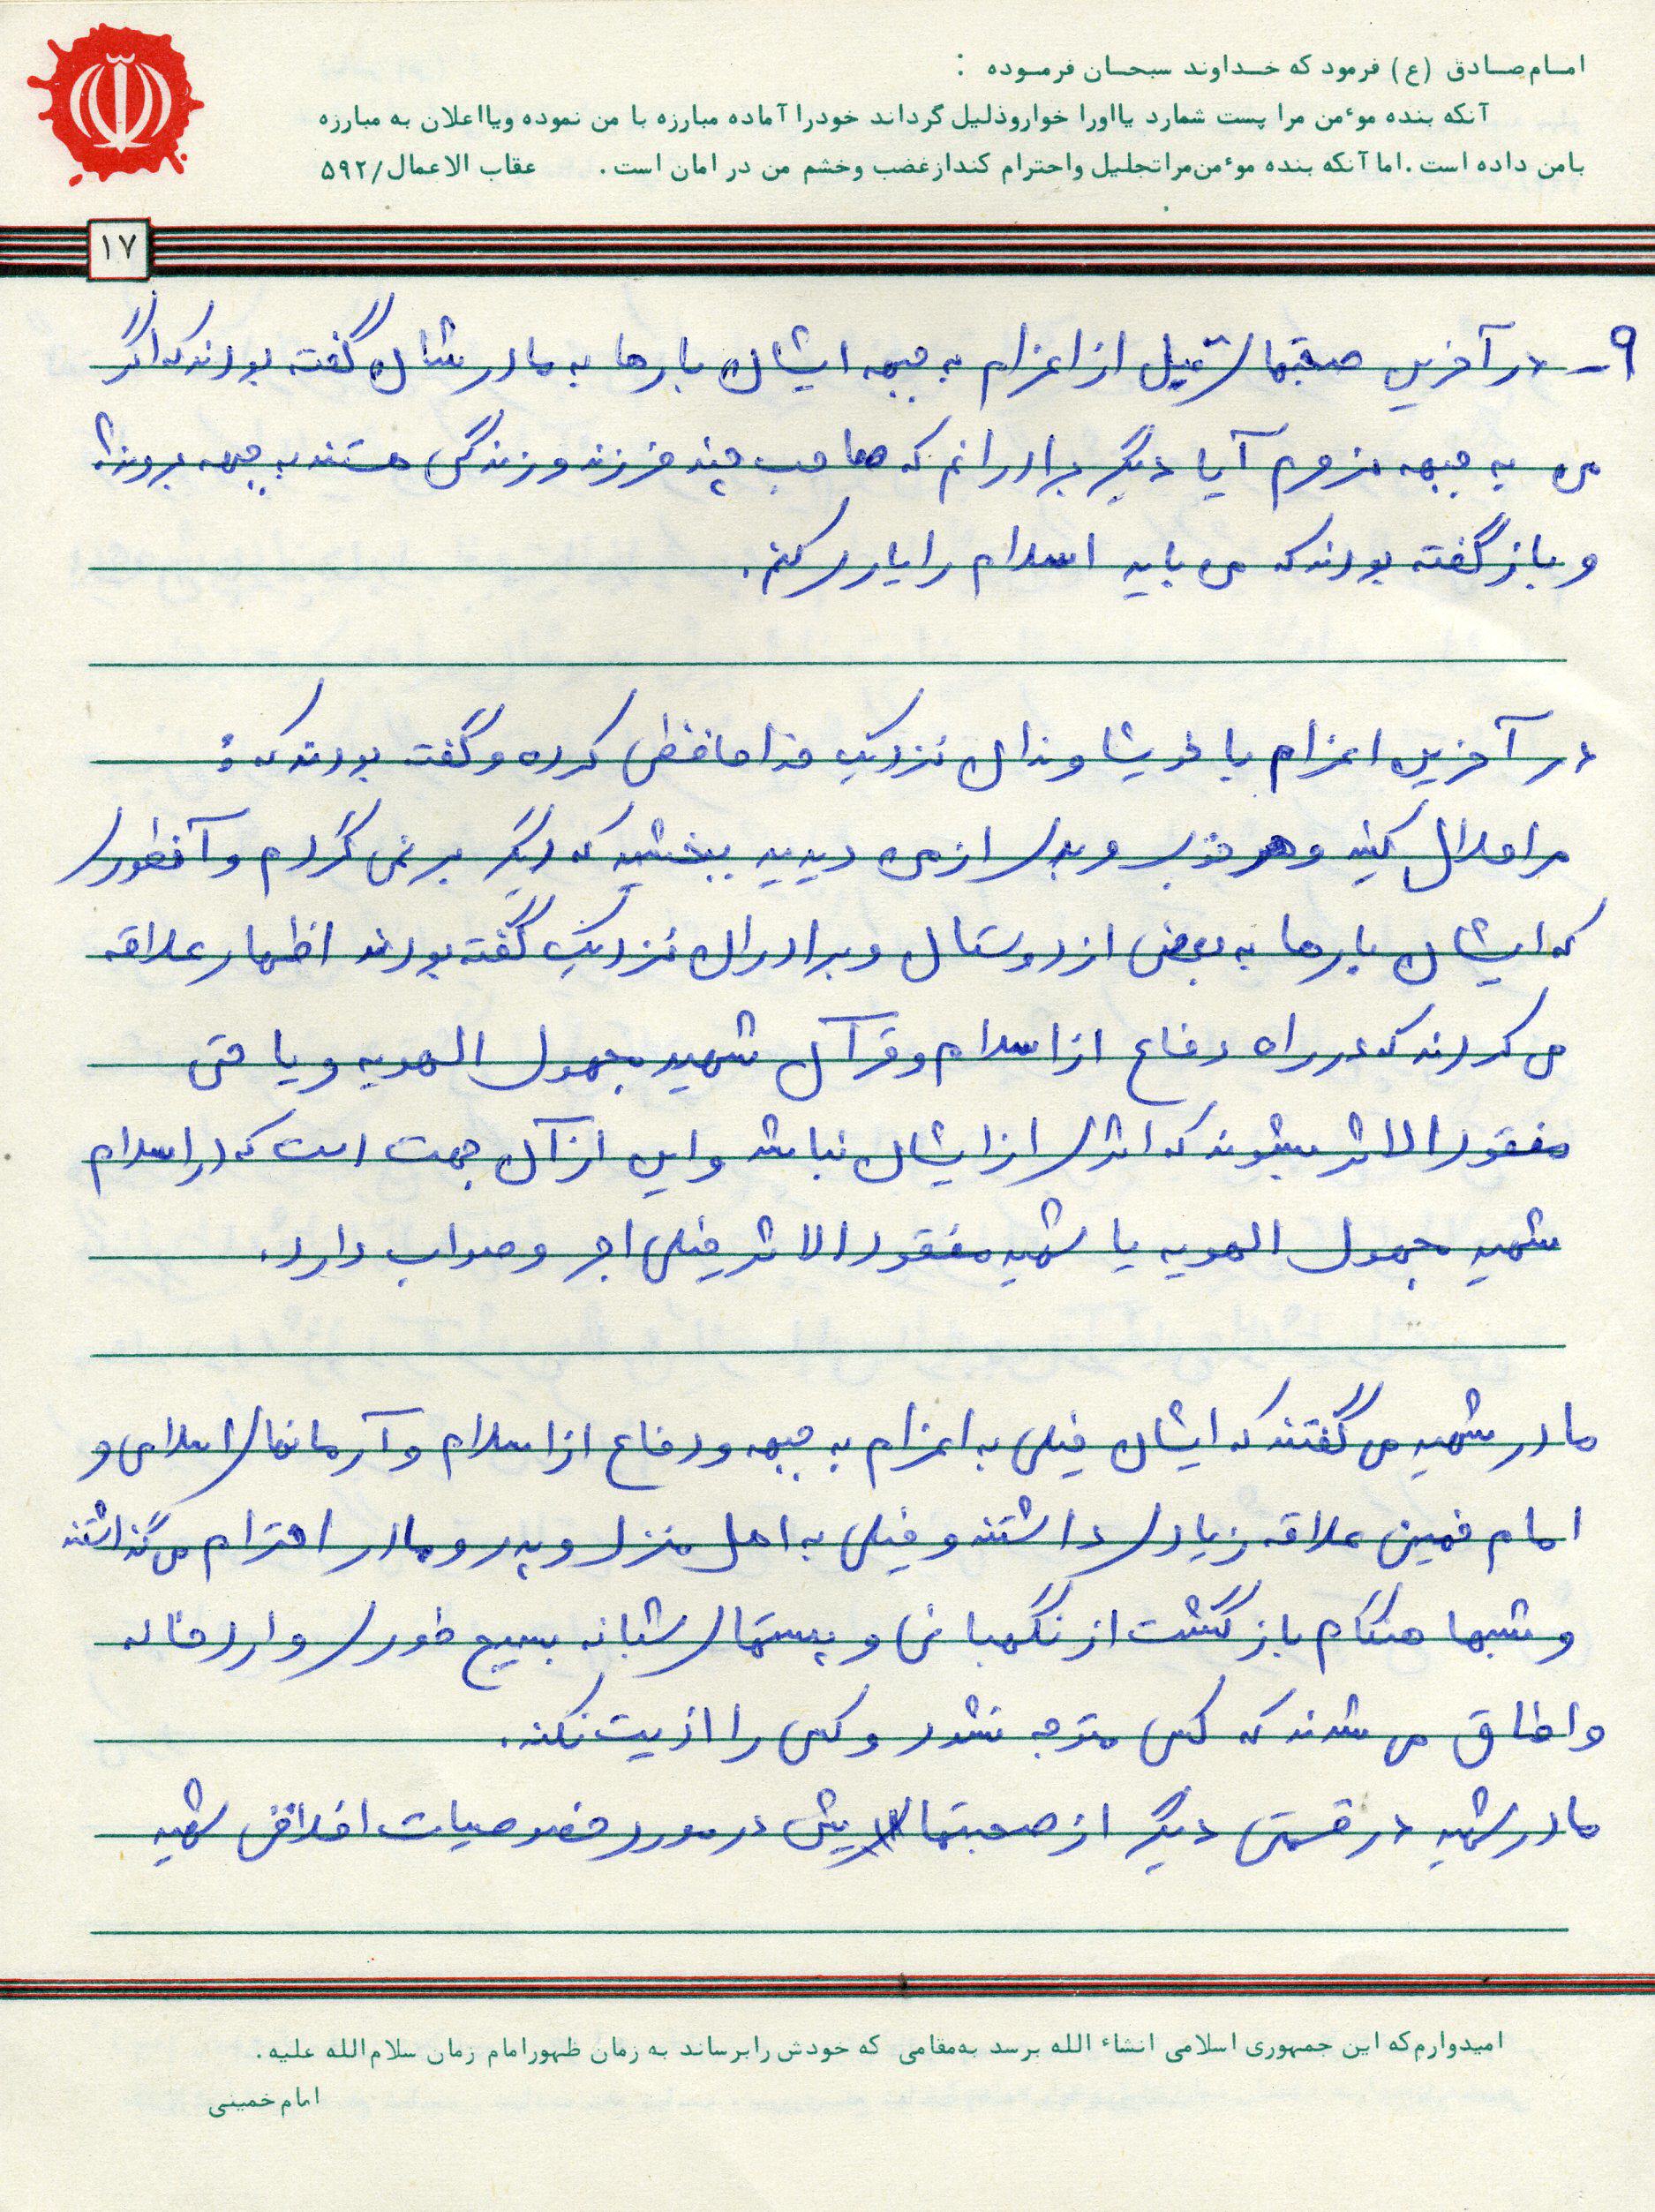 امام صادق (ع) فرمود که خداوند سبحان فرموده :
آنکه بنده موٴمن مرا پست شمارد یا اورا خوار وذلیل گرداند خودرا آماده مبارزه با من نموده ویا اعلان به مبارزه
بامن داده است . اما آنکه بنده موٴمن مرا تجلیل واحترام کند از غضب وخشم من در امان است . عقاب الاعمال/۵۹۲
۱۷
۹- در آخرین صحبتهای قبل از اعزام به جبهه ایشان بارها به مادرشان گفته بودند که اگر
من به جبهه نروم آیا دیگر برادرانم که صاحب چند فرزند و زندگی هستند به جبهه بروند؟
و باز گفته بودند که من باید اسلام را یاری کنم.
در آخرین اعزام با خویشاوندان نزدیک خداحافظی کرده و گفته بودند که :
مرا حلال کنید و هر خوبی و بدی از من دیدید ببخشید که دیگر بر نمی گردم و آنطوری
که ایشان بارها به بعضی از دوستان و برادران نزدیک گفته بودند اظهار علاقه
می کردند که در راه دفاع از اسلام و قرآن شهید مجهول الهویه و یا حتی
مفقود الاثر بشوند که اثری از ایشان نباشد و این از آن جهت است که در اسلام
شهید مجهول الهویه یا شهید مفقود الاثر خیلی اجر و صواب دارد.
مادر شهید می گفتند که ایشان خیلی به اعزام به جبهه و دفاع از اسلام و آرمانهای اسلامی و
امام خمینی علاقه زیادی داشتند و خیلی به اهل منزل و پدر و مادر احترام می گذاشتند
و شبها هنگام بازگشت از نگهبانی و پستهای شبانه بسیج طوری وارد خانه
و اطاق می شدند که کسی متوجه نشود و کسی را اذیت نکند.
مادر شهید در قسمتی دیگر از صحبتهایش در مورد خصوصیات اخلاقی شهید
امیدوارم که این جمهوری اسلامی انشاء الله برسد به مقامی که خودش را برساند به زمان ظهور امام زمان سلام الله علیه .
امام خمینی